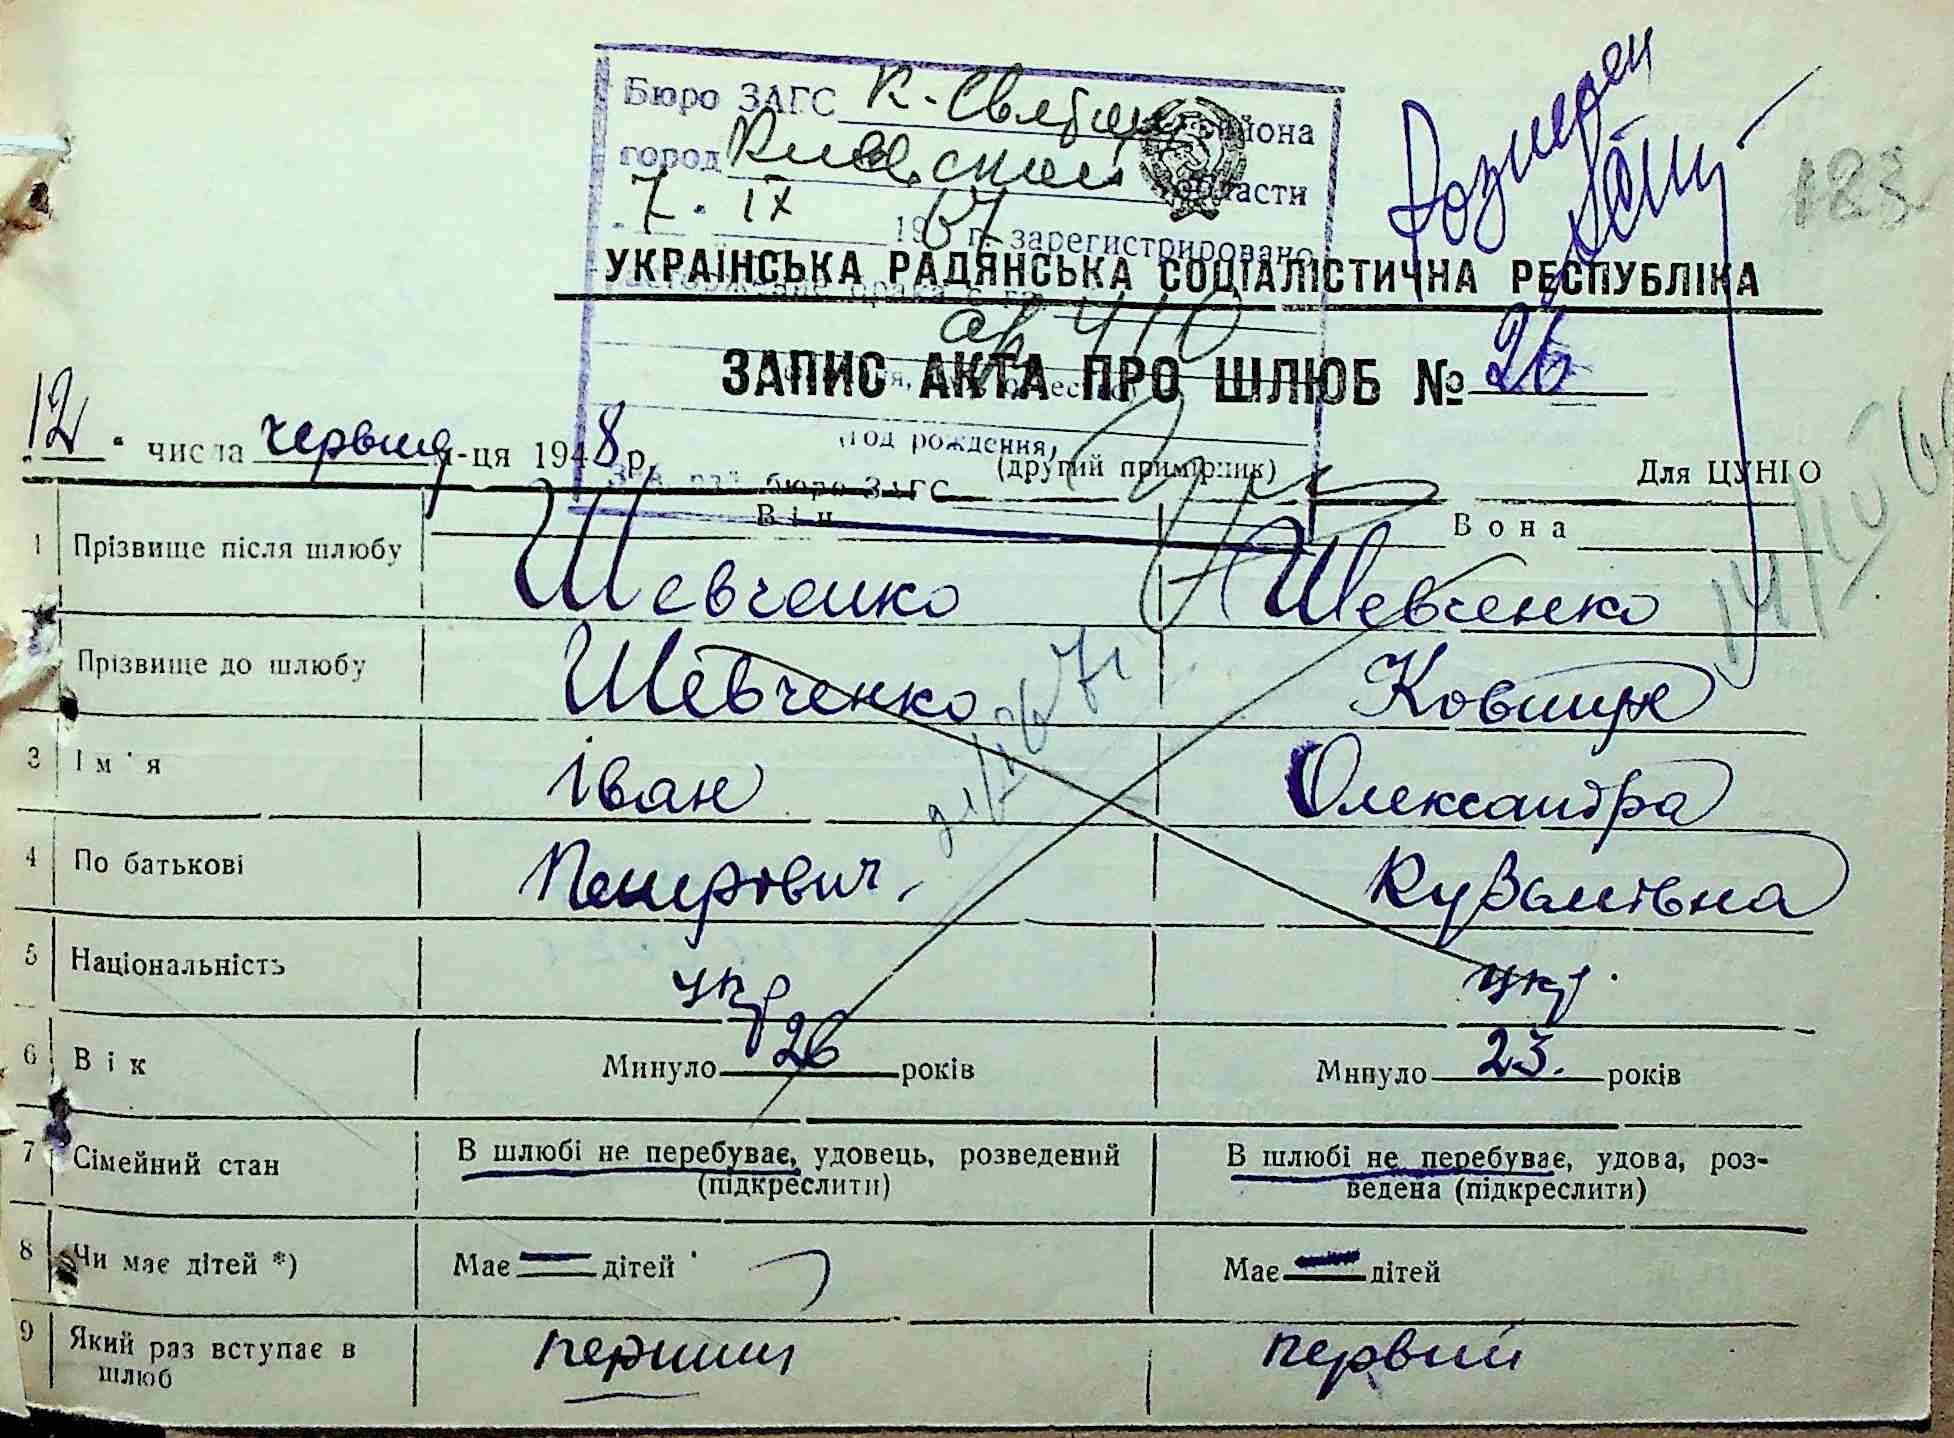 Бюро ЗАГС К-Святош района
город Киевской области
7. IX 1967 г. зарегистрировано
УКРАЇНСЬКА РАДЯНСЬКА СОЦІАЛІСТИЧНА РЕСПУБЛІКА
ар 410
ЗАПИС АКТА ПРО ШЛЮБ № 26
(год рождения)
12 числа червня м-ця 1948 р.
(другий примірник)
Для ЦУНГО
бюро ЗАГС
183
Він Вона
1 Прізвище після шлюбу Шевченко Шевченко
Прізвище до шлюбу Шевченко
3 Ім'я Іван Олександра
4 По батькові Петрович Кузьмівна
5 Національність укр укр.
6 Вік Минуло 26 років Минуло 23. років
7 Сімейний стан В шлюбі не перебуває, удовець, розведений (підкреслити) В шлюбі не перебуває, удова, розведена (підкреслити)
8 Чи має дітей *) Має — дітей Має — дітей
9 Який раз вступає в шлюб перший первий